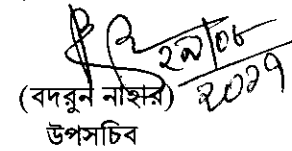 ২৯/০৮
২০১৭
(বদরুন নাহার)
উপসচিব